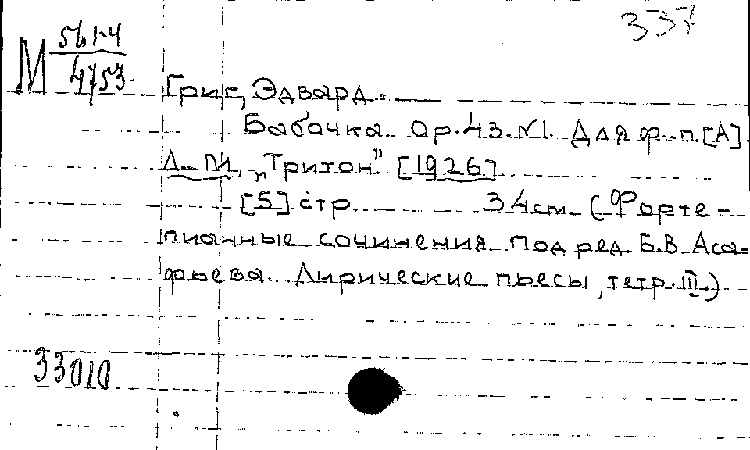 337
М 561-4
4753
Григ, Эдвард.
Бабочка. Ор. 43. №1. Для ф.-п. [А]
Л. - М., „Тритон" [1926]
[5] стр. 34 см. (Форте-
пианные сочинения под ред. Б.В. Аса-
фьева. Лирические пьесы, тетр. III.)
33010